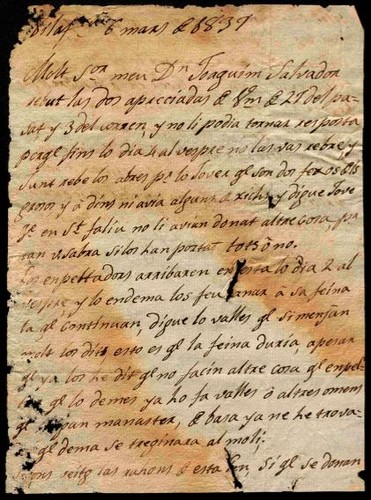 6 mars de 1837
Molt Sor. meu Dn. Joaquim Salvador
rebut las dos apreciadas de Vm de 27 del pa-
sat y 3 del corren, y no li podia tornar resposta
perqe fins lo dia 4 al vespre no las vas rebre, y
junt rebe los abres pe lo Jove qe son dos feixos els
grosos y a dins ni avia alguns de xichs, y digue Jove
qe en St. faliu no li avian donat altre cosa, per
tan vsabra silos han portat tots ò no.
Los enpeltadors arribaren en lo dia 2 al
vespre, y lo endema los feu anar à sa feina
la qe Continuan, digue lo valles qe si menjan
molt los dits, esto es qe la feina duria, apesar
qe ya los he dit qe no facin altre cosa qe enpel-
qe lo demes ya ho fa valles ò altres omens
qe man manaster, de basa ya ne he troba
qe dema se treginara al moli;
las rahons de esta Si qe se donan